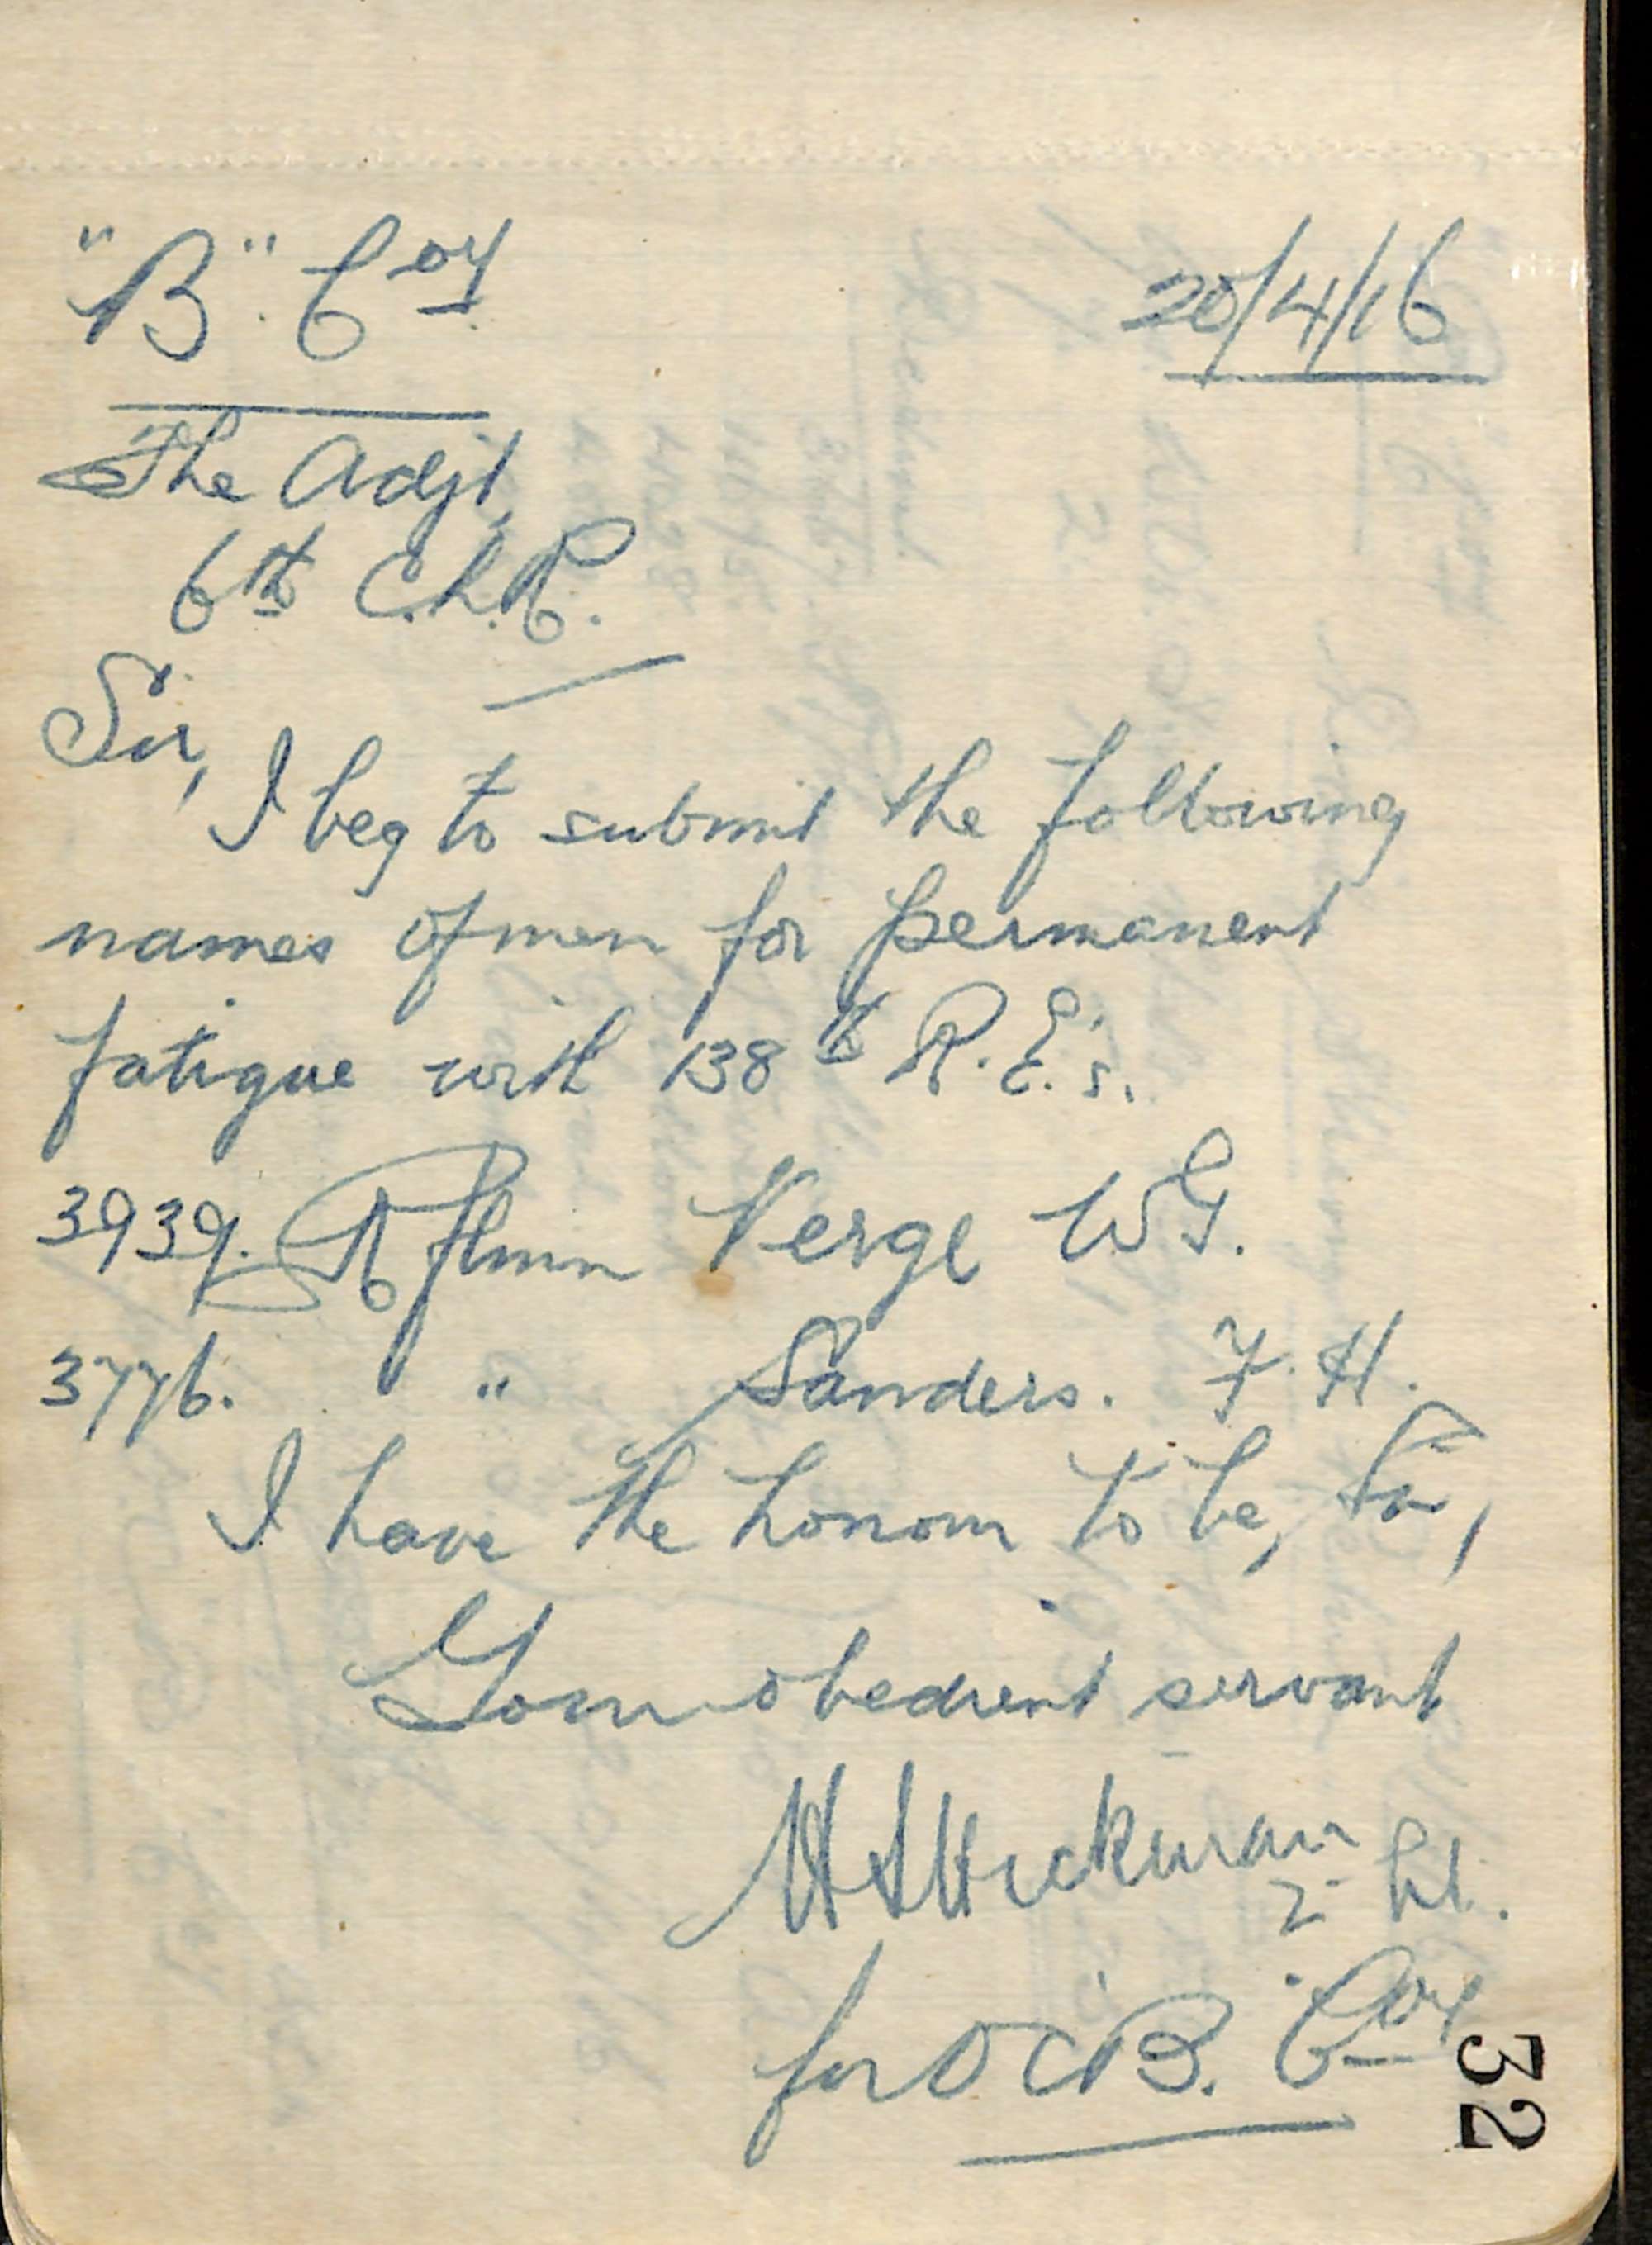 "B". Coy 20/4/16
The Adjt,
6th C.L.R.
Sir,
I beg to submit the following
names of men for permanent
fatigue with 138th R.E.'s.
3939. Rflmn Verge W G.
3776. " Sanders. F. H.
I have the honour to be, Sir,
Your obedient servant
H S Hickman 2 Lt.
for O C B. Coy
32